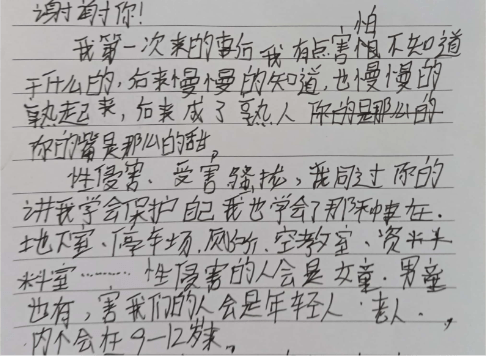 谢谢你!
我第一次来的事后我有点害怕不知道
干什么的,后来慢慢的知道,也慢慢的
熟起来,后来成了熟人你的是那么的
你的嘴是那么的甜,
性侵害、受害骚扰,我同过你的
讲我学会保护自己我也学会了那种事在.
地下室、停车场、厕所、空教室、资料
料室………性侵害的人会是女童.男童
也有,害我们的人会是年轻人.老人.,
内个会在9—12岁来。